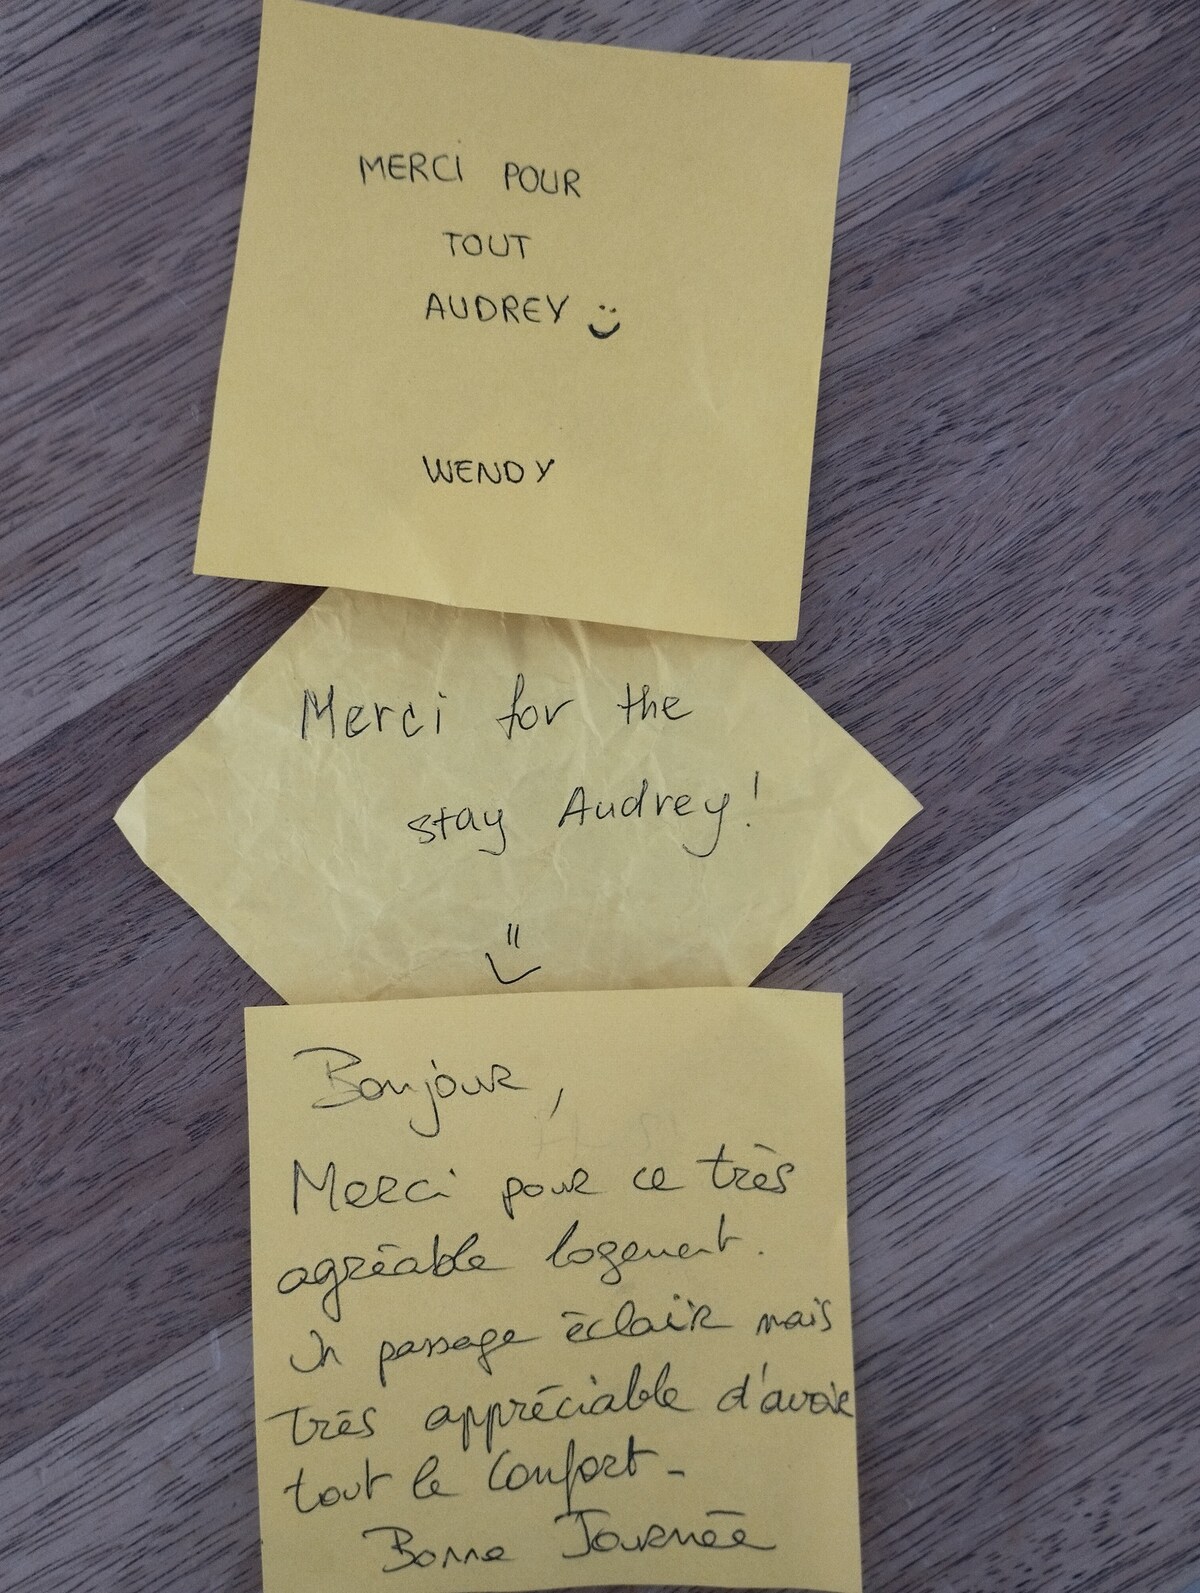 MERCI POUR
TOUT
AUDREY
WENDY
Merci for the
stay Audrey!
Bonjour,
Merci pour ce très
agréable logement.
Un passage éclair mais
très appréciable d'avoir
tout le confort -
Bonne Journée